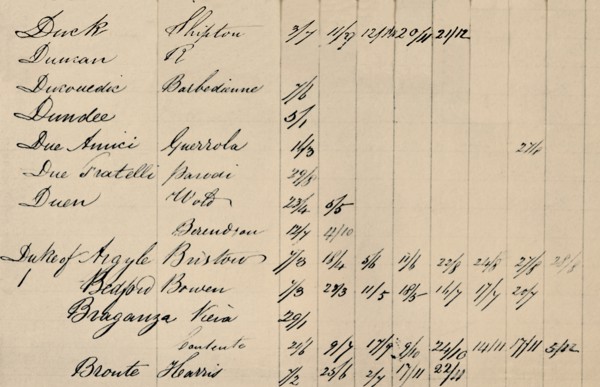 Duck Shipton 3/7 11/9 12/10 20/11 21/12
Duncan R
Ducouedic Barbedienne 7/6
Dundee 5/1
Due Amici Guerrola 16/3 27/4
Due Fratelli Parodi 29/8
Duen Wold 23/4 5/5
Berendson 12/7 14/10
Duke of Argyle Bristow 7/3 18/4 5/6 12/6 22/8 24/8 27/8 28/8
Bedford Bowen 7/3 29/3 11/5 18/5 16/7 17/7 20/7
Braganza Viera 29/1
21/6 9/7 17/9 9/10 24/10 14/11 17/11 5/12
Bronte Harris 7/2 25/6 2/7 17/11